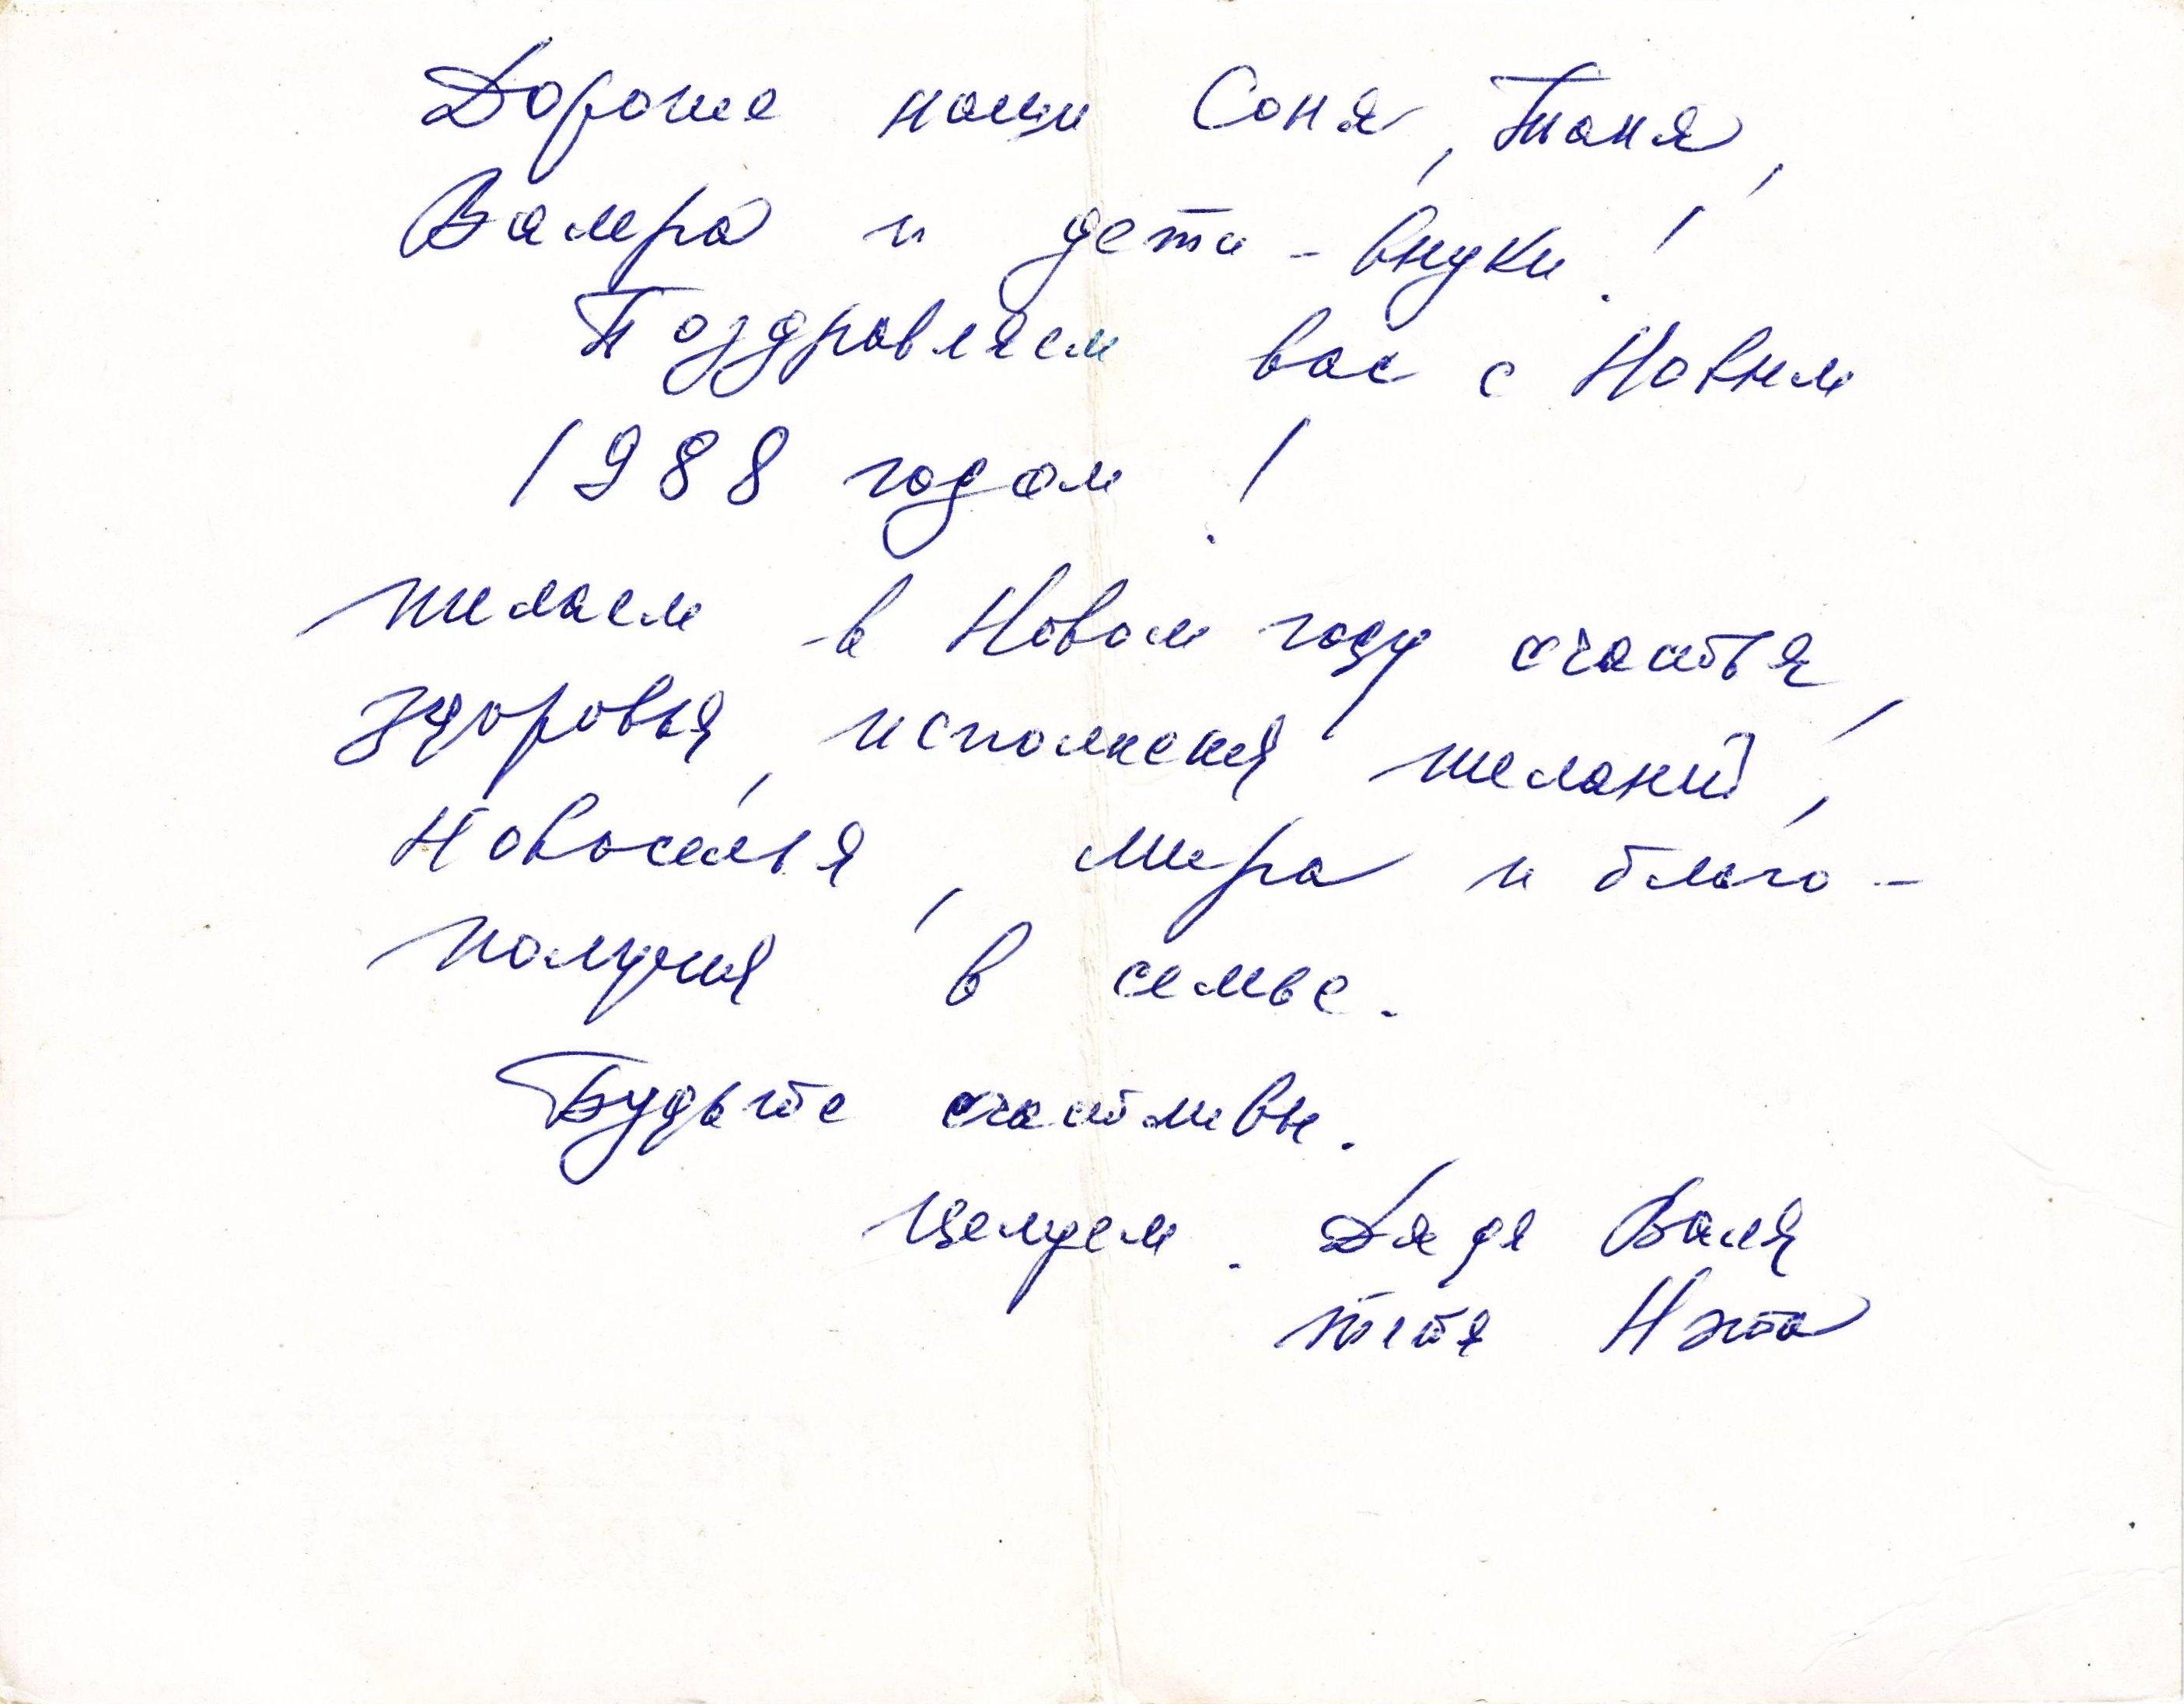 Дорогие наши Соня, Таня,
Валера и дети-внуки!
Поздравляем вас с Новым
1988 годом!
Желаем в Новом году счастья,
здоровья, исполнения желаний,
Новоселья, мира и благо-
получия в семье.
Будьте счастливы.
Целуем. Дядя Валя
тетя Нэта